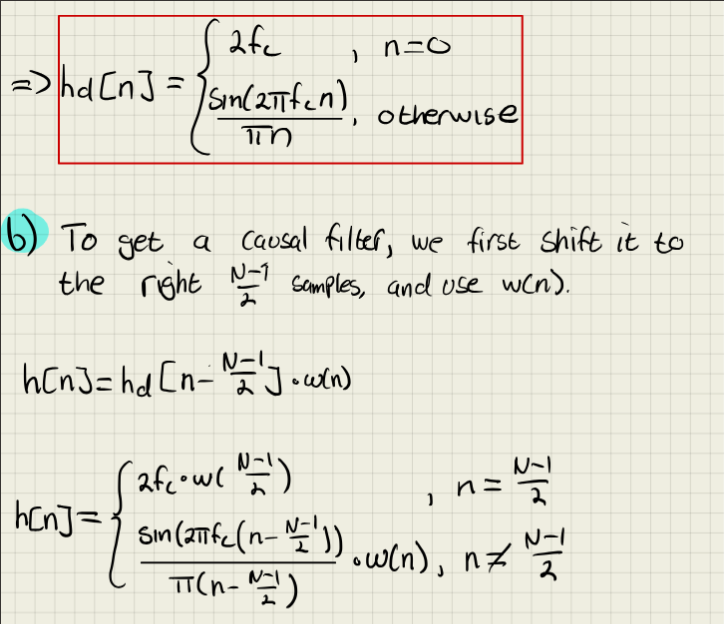 ⇒ hd[n] = { 2fc , n=0
sin(2πfcn)/πn , otherwise
b) To get a causal filter, we first shift it to
the right (N-1)/2 samples, and use w(n).
h[n] = hd[n - (N-1)/2] · w(n)
h[n] = { 2fc · w((N-1)/2) , n = (N-1)/2
sin(2πfc(n - (N-1)/2))/π(n - (N-1)/2) · w(n), n ≠ (N-1)/2